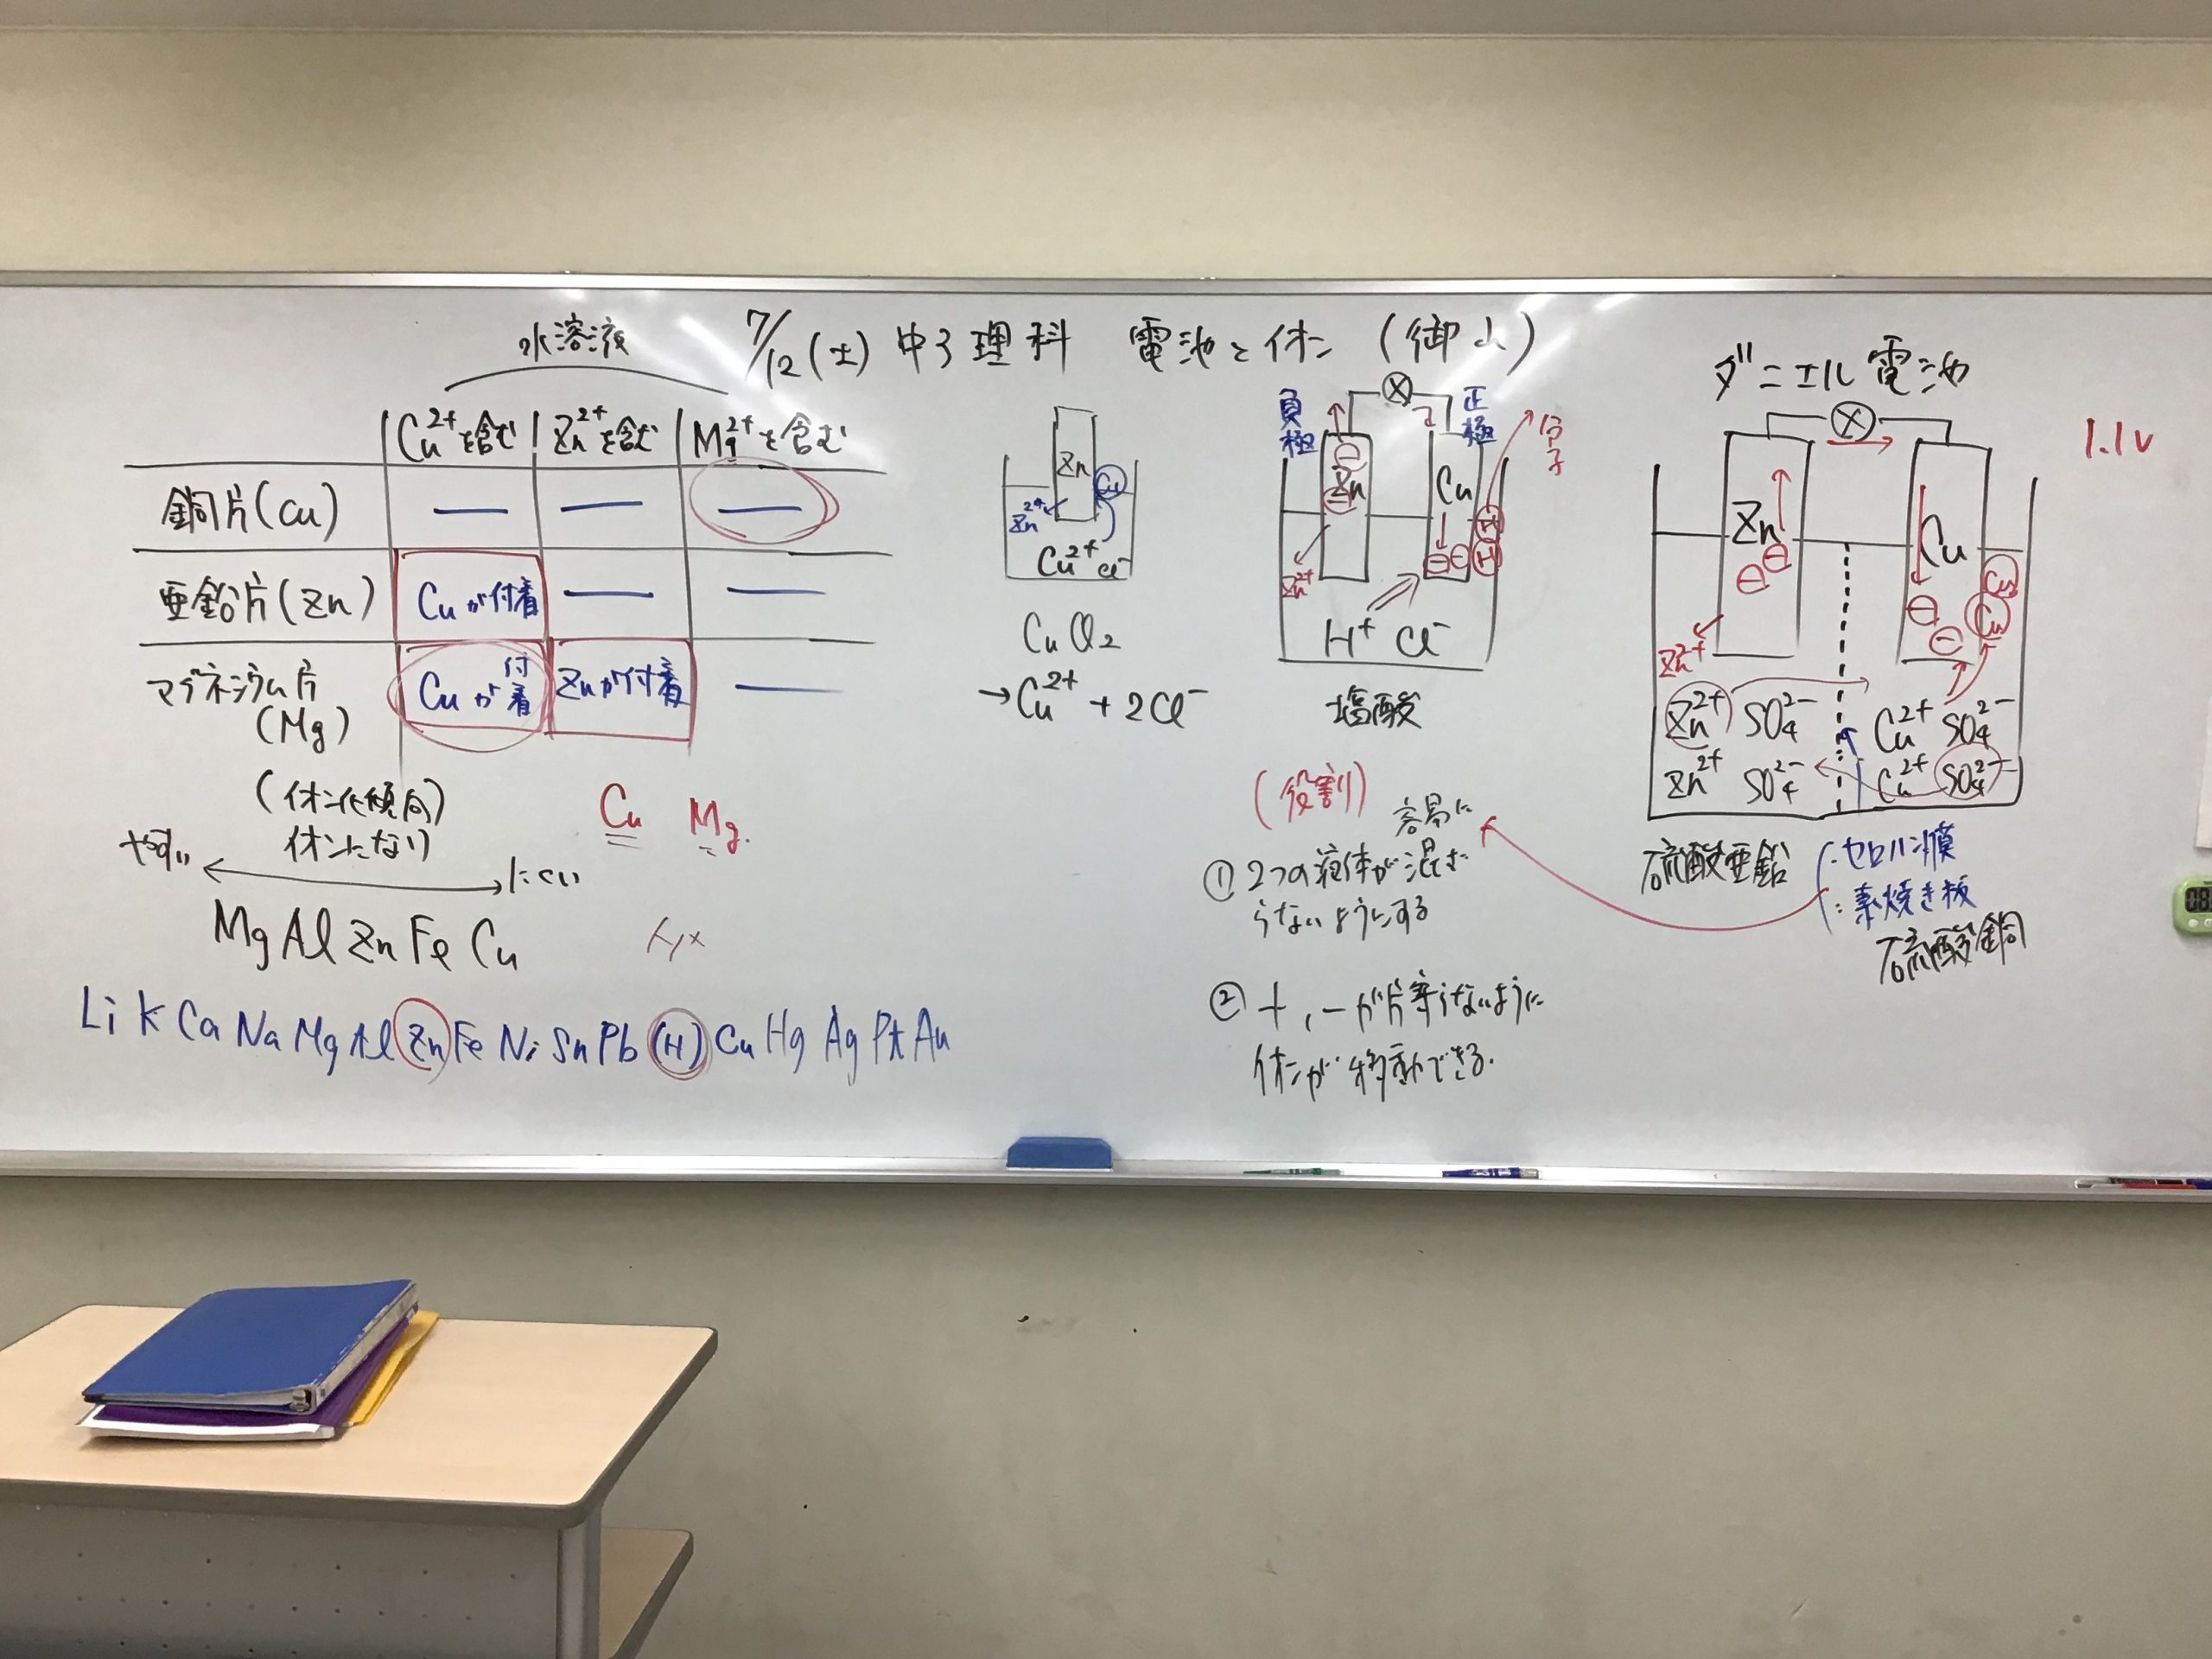 7/12(土) 中3理科 電池とイオン (御山)
水溶液
Cu²⁺を含む Zn²⁺を含む Mg²⁺を含む
銅片(Cu) — — —
亜鉛片(Zn) Cuが付着 — —
マグネシウム片(Mg) Cuが付着 Znが付着 —
(イオン化傾向)
イオンになり
やすい ←→ にくい
Mg Al Zn Fe Cu
Cu Mg
Li K Ca Na Mg Al Zn Fe Ni Sn Pb (H) Cu Hg Ag Pt Au
Zn
Cu
Zn²⁺
Cu²⁺ Cl⁻
CuCl₂
→Cu²⁺ + 2Cl⁻
負極 正極
分子
Zn Cu
⊖ ⊖
⊖ ⊖ H H
Zn²⁺
H⁺ Cl⁻
塩酸
(役割)
容易に
① 2つの液体が混ざ
らないようにする
② +,−が片寄らないように
イオンが移動できる.
ダニエル電池
1.1v
Zn Cu
⊖ ⊖
Cu
⊖ ⊖ Cu
Zn²⁺
Zn²⁺ SO₄²⁻ Cu²⁺ SO₄²⁻
Zn²⁺ SO₄²⁻ Cu²⁺ SO₄²⁻
硫酸亜鉛
・セロハン膜
・素焼き板
硫酸銅
08